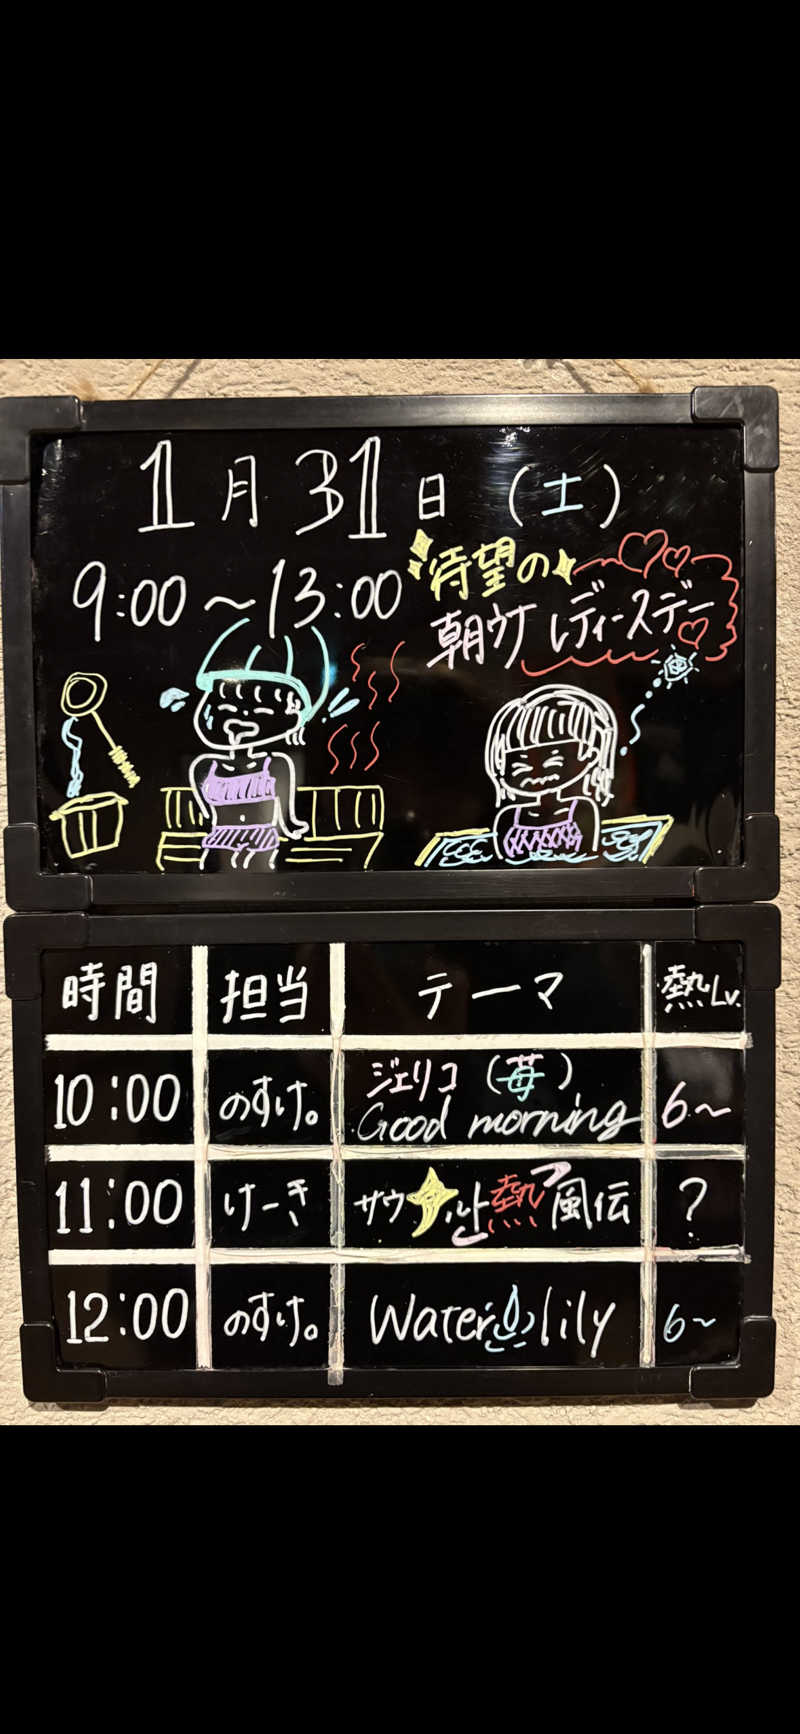 1月31日（土）
9:00～13:00
待望の
朝ウナ レディースデー
時間 担当 テーマ 熱Lv.
10:00 のすけ。 ジェリコ（苺） Good morning 6～
11:00 けーき サウナルト熱風伝 ?
12:00 のすけ。 Water lily 6～